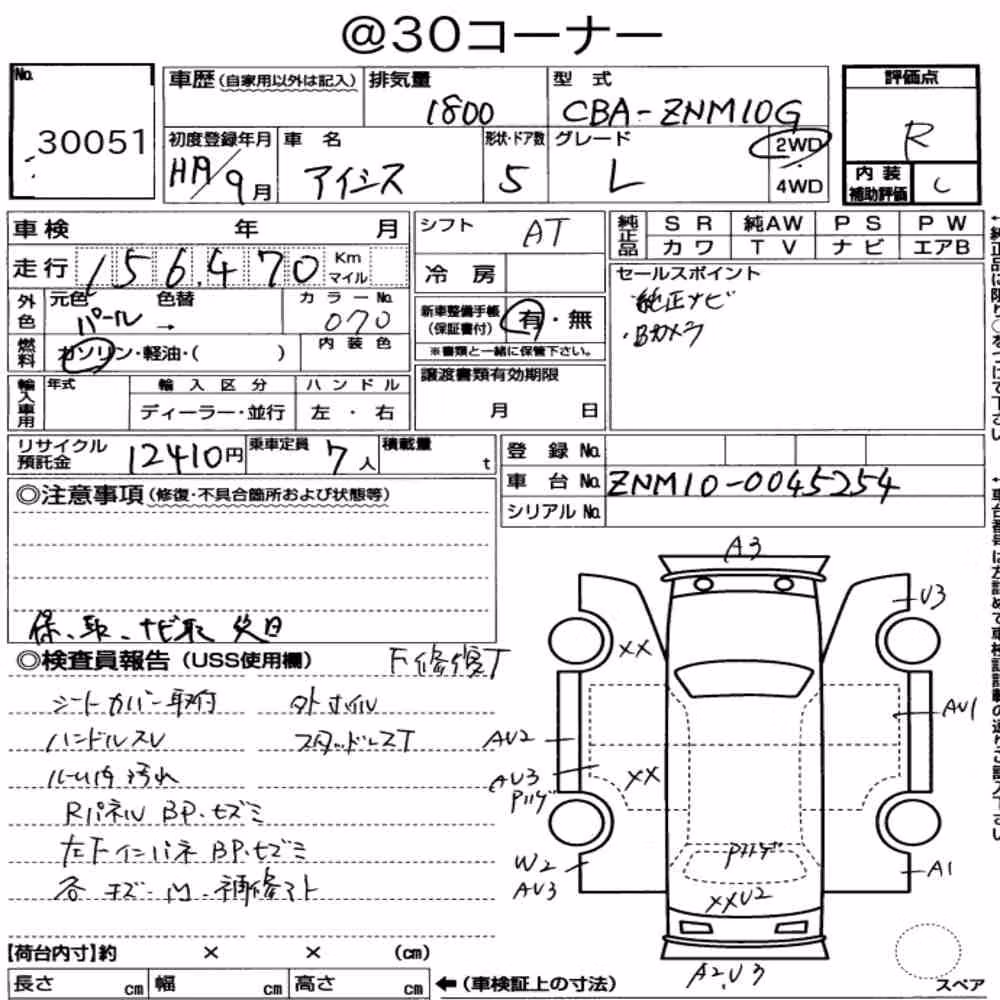 @30コーナー
No.
30051
車歴(自家用以外は記入)
排気量
1800
型式
CBA-ZNM10G
評価点
R
内装補助評価
C
初度登録年月
9月
車名
アイシス
形状・ドア数
5
グレード
L
2WD
4WD
車検 年 月
走行 156,470 Km マイル
外色
元色 パール
色替 →
カラーNo.
070
燃料
ガソリン・軽油・( )
内装色
輸入車用
年式
輸入区分
ディーラー・並行
ハンドル
左・右
シフト
AT
冷房
新車整備手帳(保証書付)
有・無
※書類と一緒に保管下さい。
譲渡書類有効期限
月 日
純正品
SR 純AW PS PW
カワ TV ナビ エアB
セールスポイント
・純正ナビ
・Bカメラ
リサイクル預託金
12410円
乗車定員
7人
積載量
t
登録No.
車台No.
ZNM10-0045254
シリアルNo.
◎注意事項(修復・不具合箇所および状態等)
保、取、ナビ取 後日
◎検査員報告(USS使用欄)
F修復T
シートカバー取付
ハンドルスレ
ルーム内汚れ
Rパネル BP.セズミ
左Fインパネ BP.セズミ
各キズ.凹.補修
スタッドレスT
A3
U3
XX
AU1
AU2
AU3
Pハゲ
XX
W2
AU3
A1
Pハゲ
XXU2
A2.U3
スペア
【荷台内寸】約 × × (cm)
長さ cm 幅 cm 高さ cm
←(車検証上の寸法)